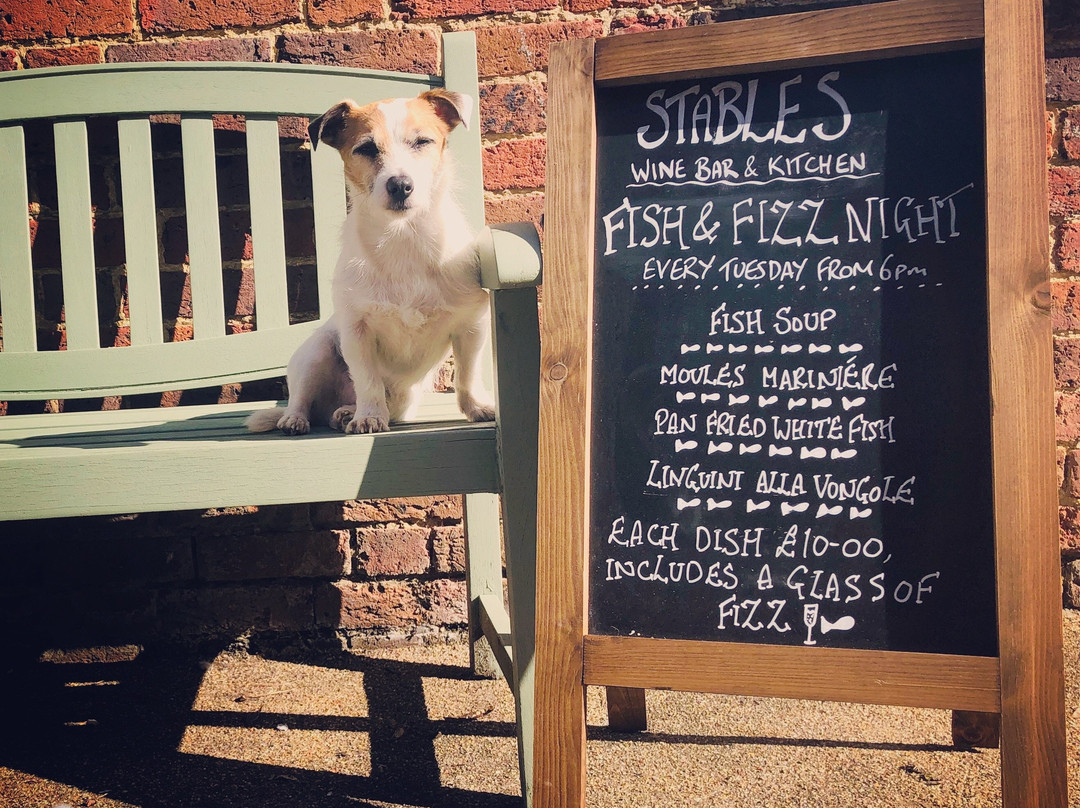 STABLES
WINE BAR & KITCHEN
FISH & FIZZ NIGHT
EVERY TUESDAY FROM 6pm
FISH SOUP
MOULES MARINIÉRE
PAN FRIED WHITE FISH
LINGUINI ALLA VONGOLE
EACH DISH £10-00,
INCLUDES A GLASS OF
FIZZ